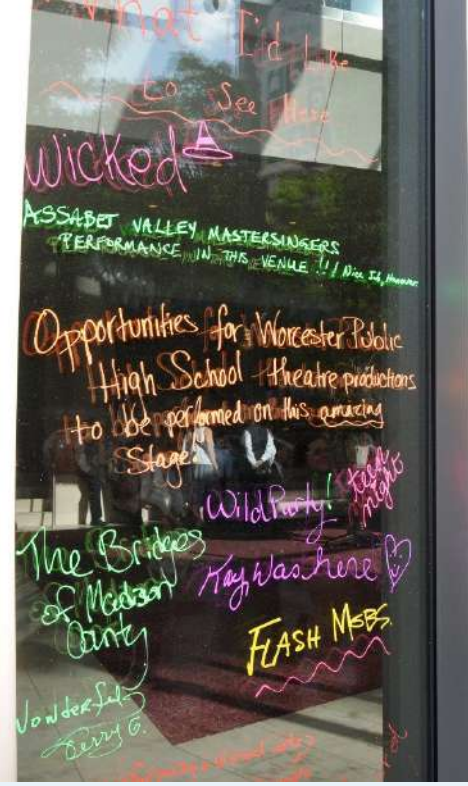 What I'd Like
to See Here
Wicked
ASSABET VALLEY MASTERSINGERS
PERFORMANCE IN THIS VENUE !!! Nice Job, Hanover
Opportunities for Worcester Public
High School theatre productions
to be performed on this amazing
Stage!
Wild Party!
teen
night
The Bridges
of Madison
County
Kay was here
FLASH MOBS
Wonderful
Gerry G.